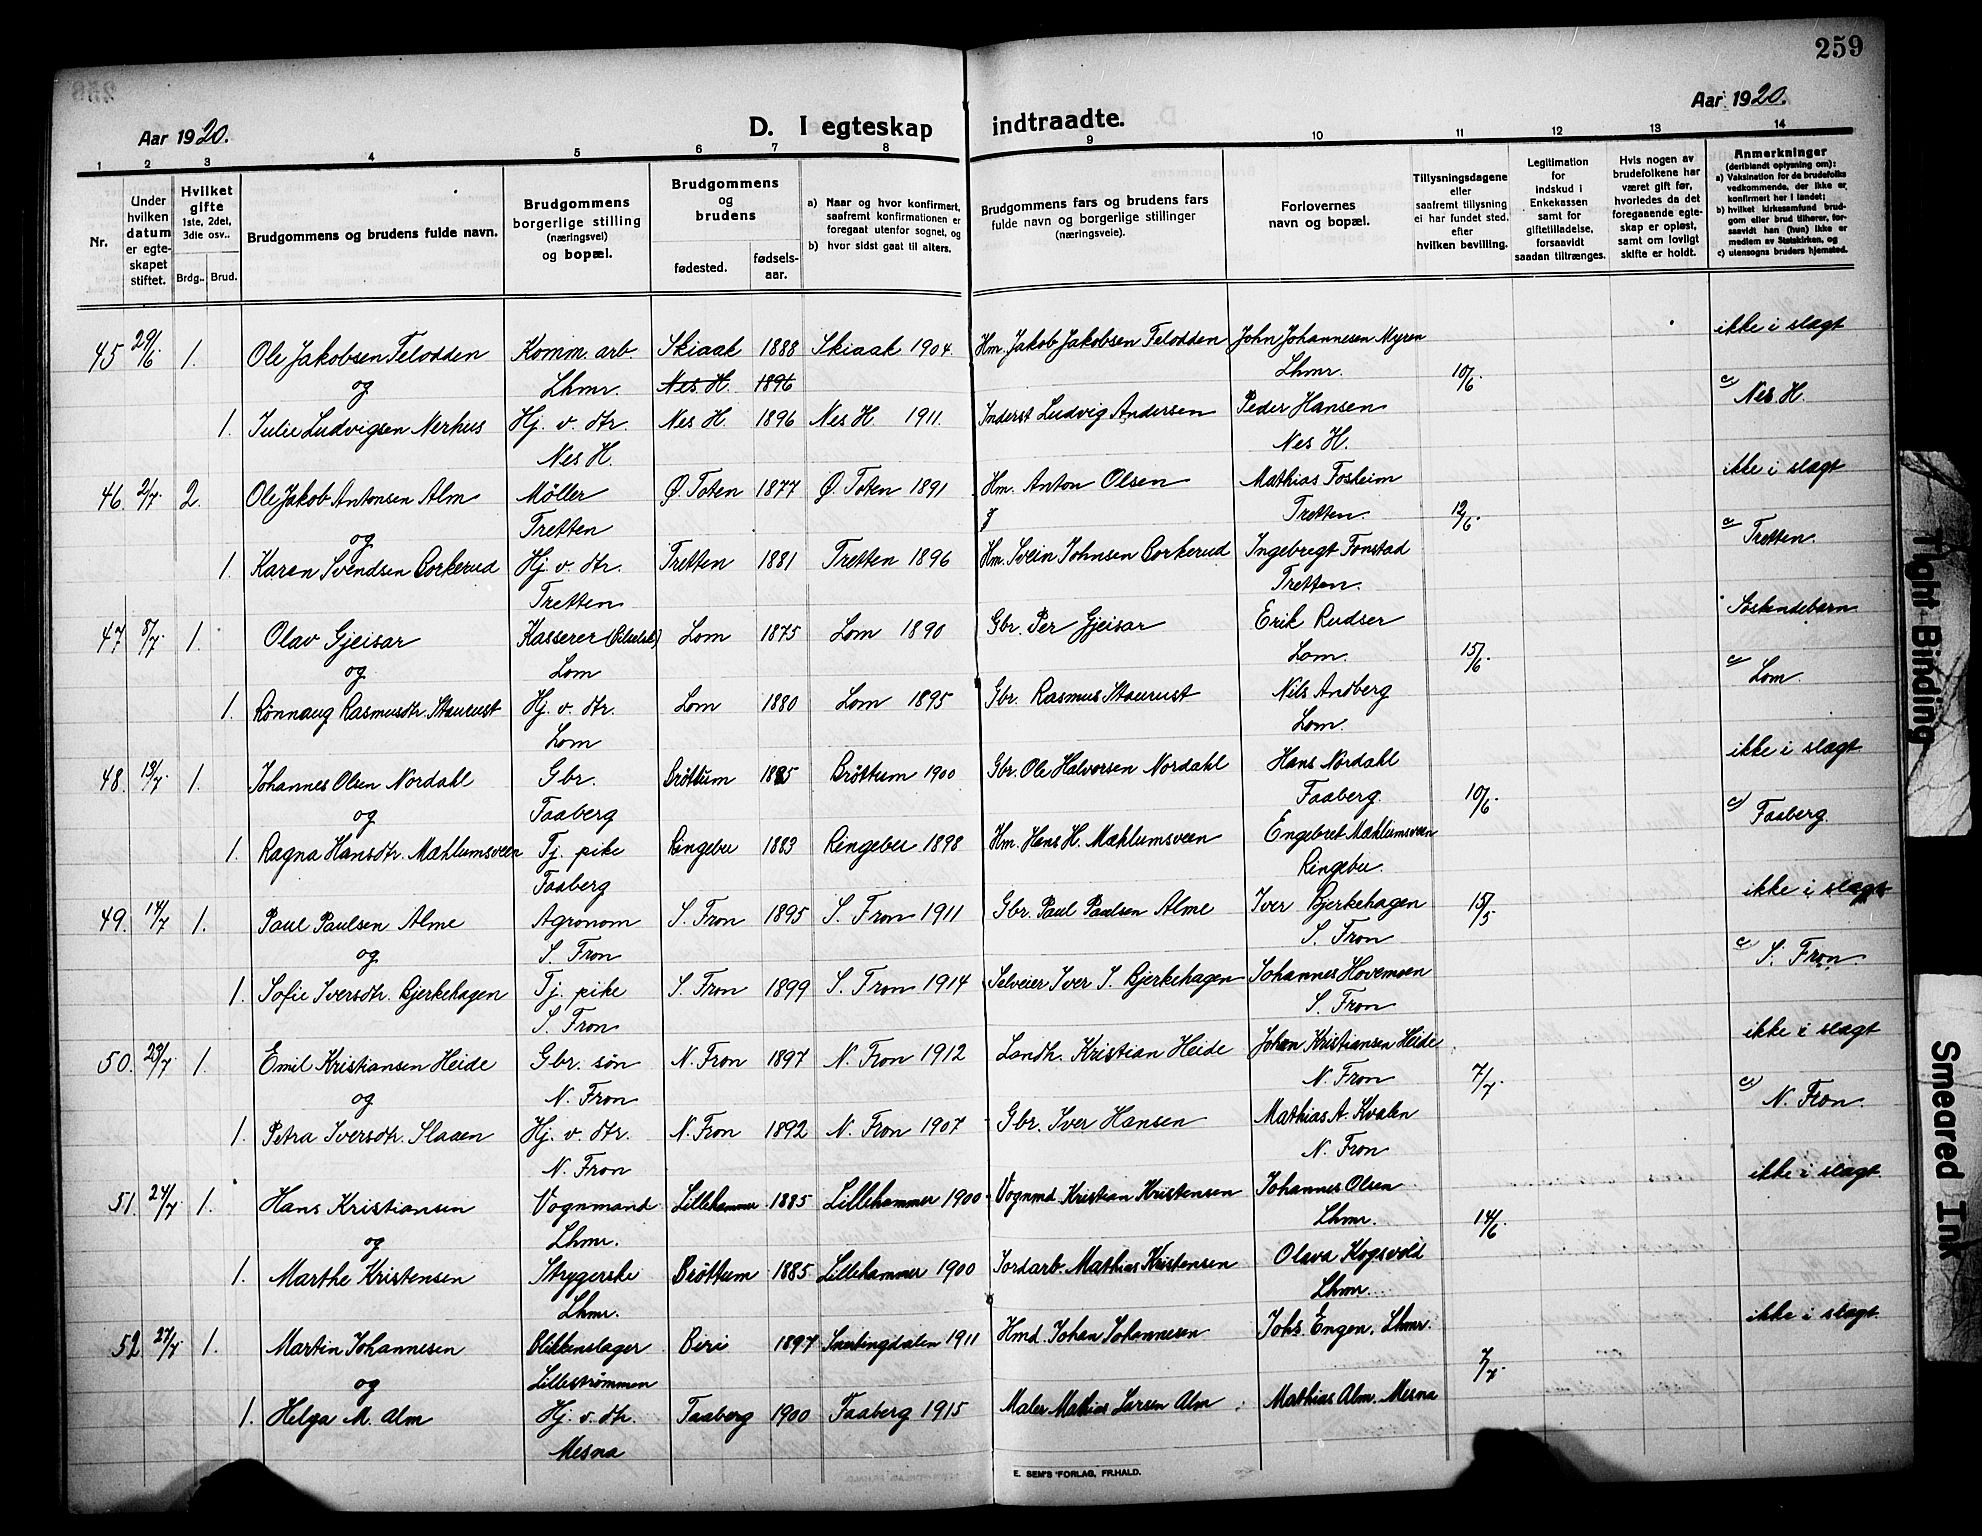 259
Aar 1920.
D. I egteskap indtraadte.
Aar 1920.
1 2 3 4 5 6 7 8 9 10 11 12 13 14
Nr.
Under hvilken datum er egteskapet stiftet.
Hvilket gifte 1ste, 2det, 3die osv..
Brdg.. Brud.
Brudgommens og brudens fulde navn.
Brudgommens borgerlige stilling (næringsvei) og bopæl.
Brudgommens og brudens
fødested.
fødselsaar.
a) Naar og hvor konfirmert, saafremt konfirmationen er foregaat utenfor sognet, og
b) hvor sidst gaat til alters.
Brudgommens fars og brudens fars fulde navn og borgerlige stillinger (næringsveie).
Forlovernes navn og bopæl.
Tillysningsdagene eller saafremt tillysning ei har fundet sted, efter hvilken bevilling.
Legitimation for indskud i Enkekassen samt for giftetilladelse, forsaavidt saadan tiltrænges.
Hvis nogen av brudefolkene har været gift før, hvorledes da det foregaaende egteskap er opløst, samt om lovligt skifte er holdt.
Anmerkninger (deriblandt oplysning om): a) Vaksination for de brudefolks vedkommende, der ikke er konfirmert her i landet; b) hvilket kirkesamfund brudgom eller brud tilhører, forsaavidt han (hun) ikke er medlem av Statskirken, og c) utensogns bruders hjemsted.
45 29/6. 1. Ole Jakobsen Telodden Komm. arb Skiaak 1888 Skiaak 1904. Hm. Jakob Jakobsen Telodden John Johannesen Myren ikke i slægt
og Lhmr. Nes H. 1896 Lhmr. 10/6.
1. Julie Ludvigsen Nerhus Hj. v. dtr. Nes H. 1896 Nes H. 1911. Inderst Ludvig Andersen Peder Hansen c) Nes H.
Nes H. Nes H.
46. 2/7. 2. Ole Jakob Antonsen Alm Møller Ø. Toten 1877 Ø. Toten 1891 Hm. Anton Olsen Mathias Fosheim ikke i slægt
og Tretten Tretten. 12/6.
1. Karen Svendsen Borkerud Hj. v. dtr. Tretten 1881 Tretten 1896 Hm. Svein Johnsen Borkerud Ingebregt Fonstad c) Tretten.
Tretten Tretten.
47. 8/7. 1. Olav Gjeisar Kasserer Lom 1875 Lom 1890 Gbr. Per Gjeisar Erik Rudser Søskendebarn
og Lom Lom. 15/6.
1. Rønnaug Rasmusdtr. Staurust Hj. v. dtr. Lom 1880 Lom 1895 Gbr. Rasmus Staurust Nils Andberg c) Lom.
Lom Lom.
48. 13/7. 1. Johannes Olsen Nordahl Gbr. Brøttum 1885 Brøttum 1900 Gbr. Ole Halvorsen Nordahl Hans Nordahl ikke i slægt
og Faaberg Faaberg. 10/6.
1. Ragna Hansdtr. Mæhlumsveen Tj. pike Ringebu 1883 Ringebu 1898 Hm. Hans H. Mæhlumsveen Engebret Mæhlumsveen c) Faaberg.
Faaberg Ringebu.
49. 14/7 1. Paul Paulsen Alme Agronom S. Fron 1895 S. Fron 1911 Gbr. Paul Paulsen Alme Iver Bjerkehagen 15/5 ikke i slægt
og S. Fron S. Fron
1. Sofie Iversdtr. Bjerkehagen Tj. pike S. Fron 1899 S. Fron 1914 Selveier Iver S. Bjerkehagen Johannes Hovemoen c) S. Fron.
S. Fron S. Fron
50. 23/7. 1. Emil Kristiansen Heide Gbr. søn N. Fron 1897 N. Fron 1912 Landh. Kristian Heide Johan Kristiansen Heide ikke i slægt
og N. Fron N. Fron 7/7.
1. Petra Iversdtr. Slaaen Hj. v. dtr. N. Fron 1892 N. Fron 1907 Gbr. Iver Hansen Mathias A. Kvalen c) N. Fron.
N. Fron N. Fron
51. 24/7 1. Hans Kristiansen Vognmand Lillehammer 1885 Lillehammer 1900 Vognmd. Kristian Kristensen Johannes Olsen ikke i slægt.
og Lhmr. Lhmr. 14/6
1. Marthe Kristensen Strygerske Brøttum 1885. Lillehammer 1900 Jordarb. Mathias Kristensen Olava Kogsvold
Lhmr. Lhmr.
52 27/7 1. Martin Johannesen Blikkenslager Biri 1897 Snertingdalen 1911 Hmd. Johan Johannesen Johs. Engen, Lhmr. ikke i slægt.
og Lillestrømmen 7/7.
1. Helga M. Alm Hj. v. dtr. Faaberg 1900 Faaberg 1915 Maler Mathias Larsen Alm Mathias Alm. Mesna
Mesna
E. SEM'S FORLAG, FR.HALD.
Tight Binding
Smeared Ink